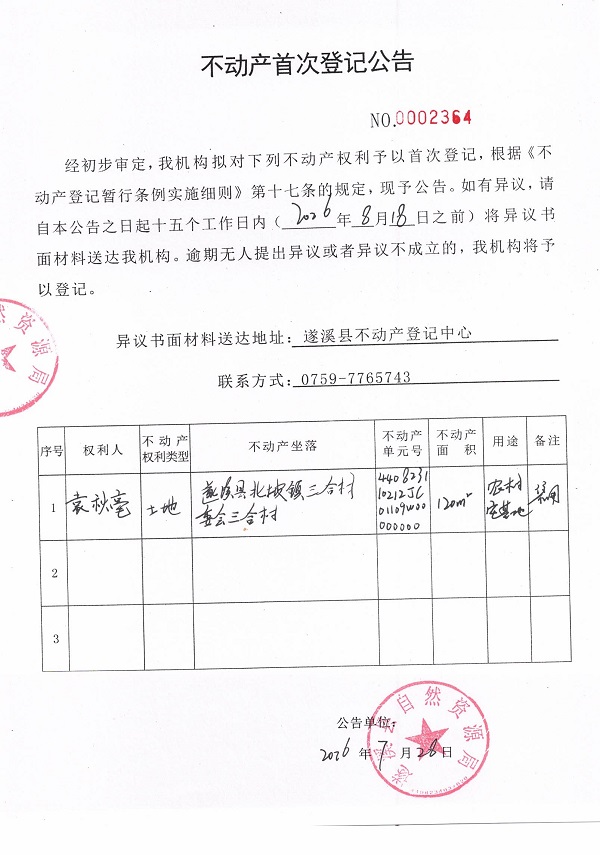 不动产首次登记公告
NO.0002364
经初步审定，我机构拟对下列不动产权利予以首次登记，根据《不
动产登记暂行条例实施细则》第十七条的规定，现予公告。如有异议，请
自本公告之日起十五个工作日内（2026年8月18日之前）将异议书
面材料送达我机构。逾期无人提出异议或者异议不成立的，我机构将予
以登记。
然资源局
异议书面材料送达地址：遂溪县不动产登记中心
联系方式：0759-7765743
序号 权利人 不动产权利类型 不动产坐落 不动产单元号 不动产面积 用途 备注
1 袁秋毫 土地 遂溪县北坡镇三合村委会三合村 440823110212JC01109W00000000 120m² 农村宅基地
2
3
公告单位：
2026年7月28日
遂溪县自然资源局